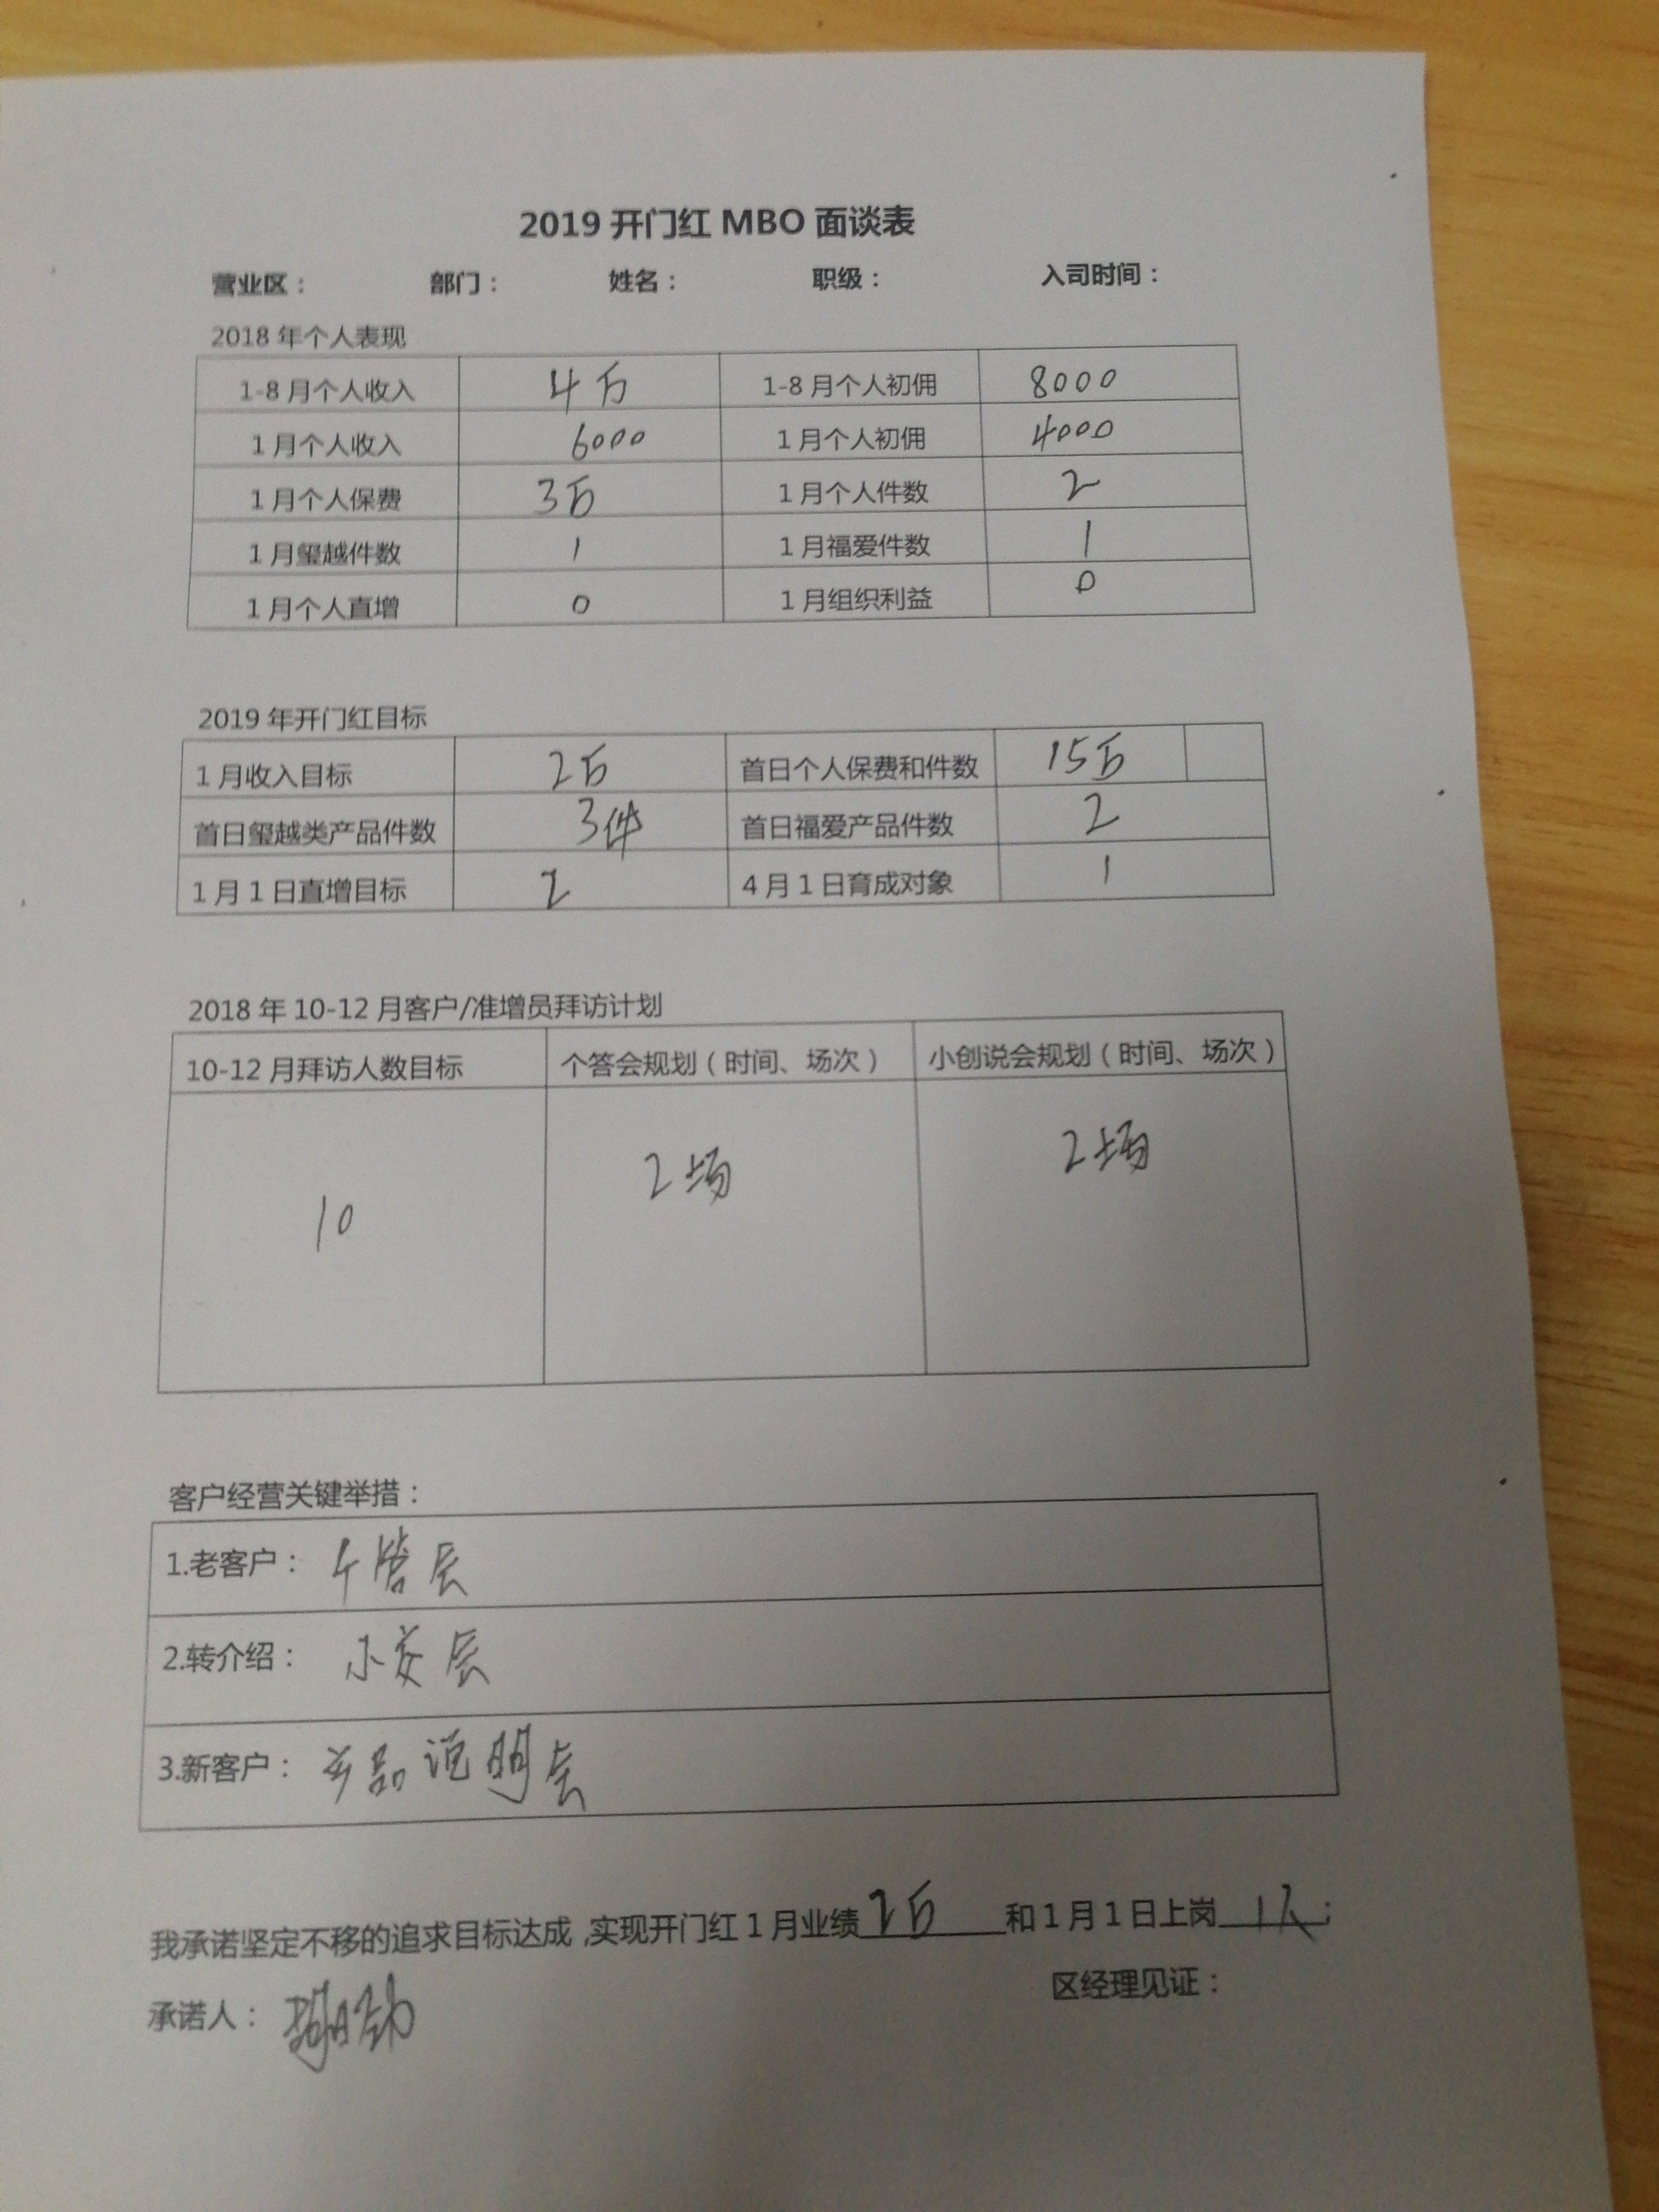 2019 开门红 MBO 面谈表
营业区： 部门： 姓名： 职级： 入司时间：
2018 年个人表现
1-8 月个人收入 4万 1-8 月个人初佣 8000
1 月个人收入 6000 1 月个人初佣 4000
1 月个人保费 3万 1 月个人件数 2
1 月玺越件数 1 1 月福爱件数 1
1 月个人直增 0 1 月组织利益 0
2019 年开门红目标
1 月收入目标 2万 首日个人保费和件数 15万
首日玺越类产品件数 3件 首日福爱产品件数 2
1 月 1 日直增目标 2 4 月 1 日育成对象 1
2018 年 10-12 月客户/准增员拜访计划
10-12 月拜访人数目标 个答会规划（时间、场次） 小创说会规划（时间、场次）
10 2场 2场
客户经营关键举措：
1.老客户： 个答会
2.转介绍： 小交会
3.新客户： 产品说明会
我承诺坚定不移的追求目标达成，实现开门红 1 月业绩 2万 和 1 月 1 日上岗 1人；
承诺人： 区经理见证：